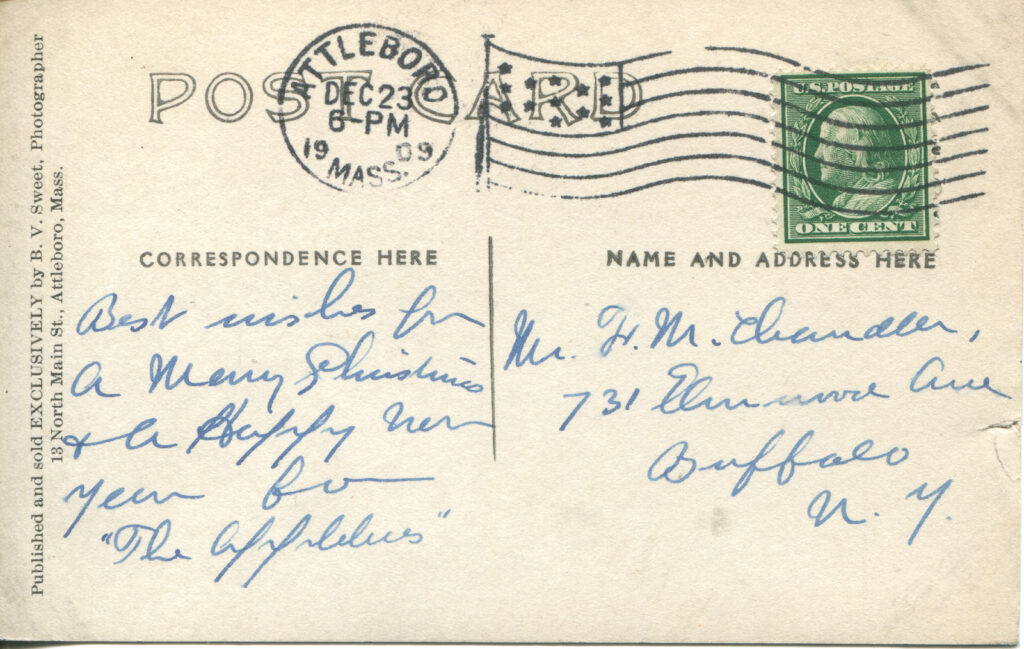 POST CARD
ATTLEBORO
DEC 23
6-PM
1909
MASS.
U.S. POSTAGE
ONE CENT
CORRESPONDENCE HERE
NAME AND ADDRESS HERE
Best wishes for
a Merry Christmas
& a Happy New
Year from
"The
Mr. H. M. Chandler,
731 Elmwood Ave
Buffalo
N. Y.
Published and sold EXCLUSIVELY by B. V. Sweet, Photographer
13 North Main St., Attleboro, Mass.